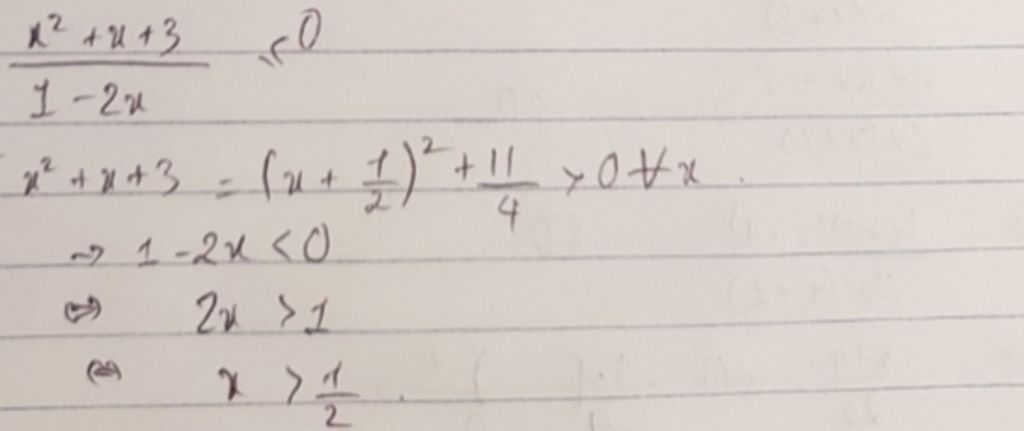 x² + x + 3 / 1 - 2x < 0
x² + x + 3 = (x + 1/2)² + 11/4 > 0 ∀ x.
→ 1 - 2x < 0
⇔ 2x > 1
⇔ x > 1/2.